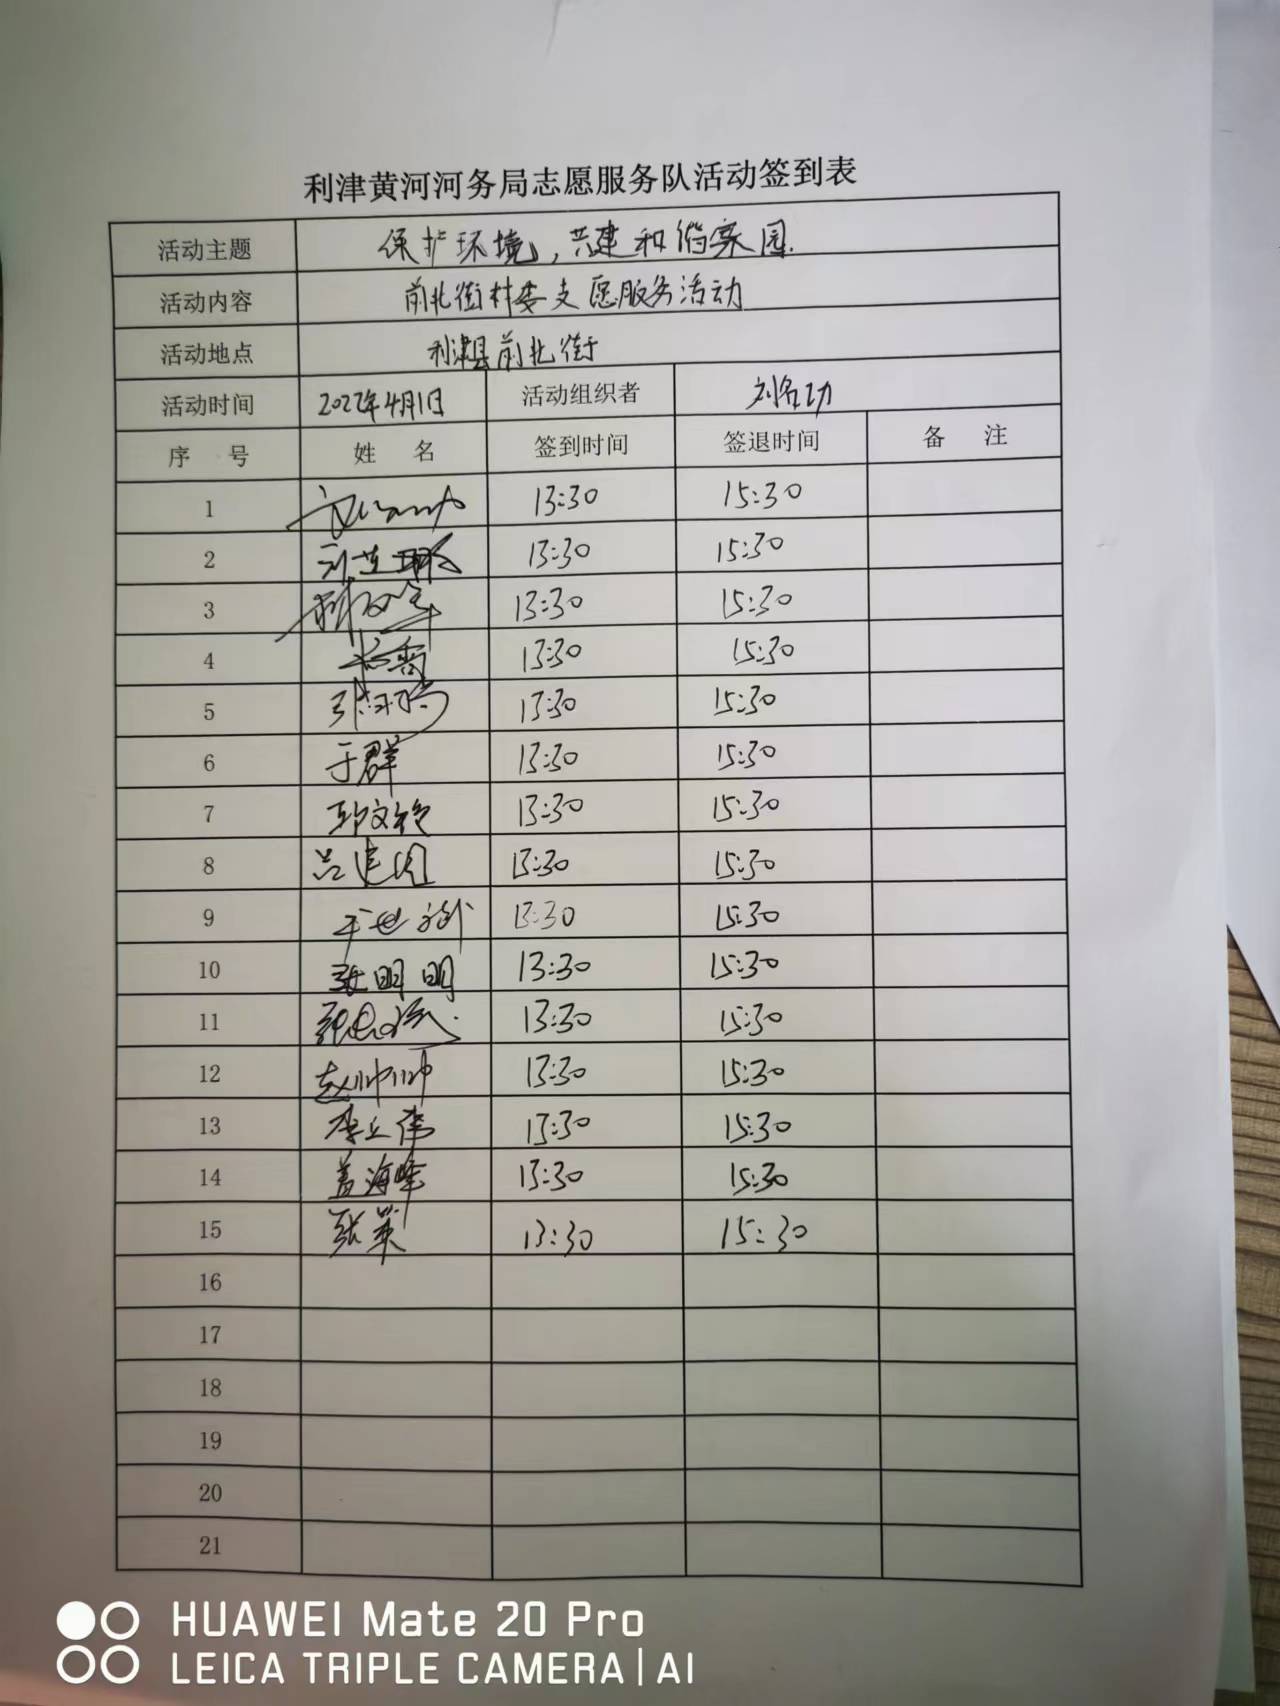 利津黄河河务局志愿服务队活动签到表
活动主题 保护环境，共建和谐家园.
活动内容 前北街村委支愿服务活动
活动地点 利津县前北街
活动时间 2022年4月1日 活动组织者 刘名功
序 号 姓 名 签到时间 签退时间 备 注
1 13:30 15:30
2 13:30 15:30
3 13:30 15:30
4 13:30 15:30
5 13:30 15:30
6 于群 13:30 15:30
7 13:30 15:30
8 吕建国 13:30 15:30
9 13:30 15:30
10 张明明 13:30 15:30
11 13:30 15:30
12 赵帅帅 13:30 15:30
13 13:30 15:30
14 盖海峰 13:30 15:30
15 张英 13:30 15:30
16
17
18
19
20
21
HUAWEI Mate 20 Pro
LEICA TRIPLE CAMERA | AI